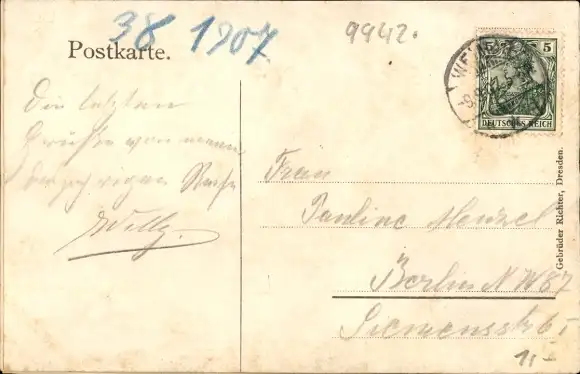 38 1907
9942.
Postkarte.
5
DEUTSCHES REICH
Die letzten
Grüße von meiner
Reise
Willy.
Frau
Pauline Menzel
Berlin NW87
Siemensstr 6 I
Gebrüder Richter, Dresden.